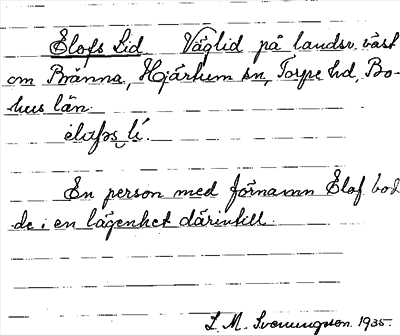 Elofs Lid Väglid på landsv. väst
om Bränna, Hjärtum sn, Torpe hd, Bo-
hus län.
En person med förnamn Elof bod
de i en lägenhet därintill.
L. M. Svenungson. 1935.